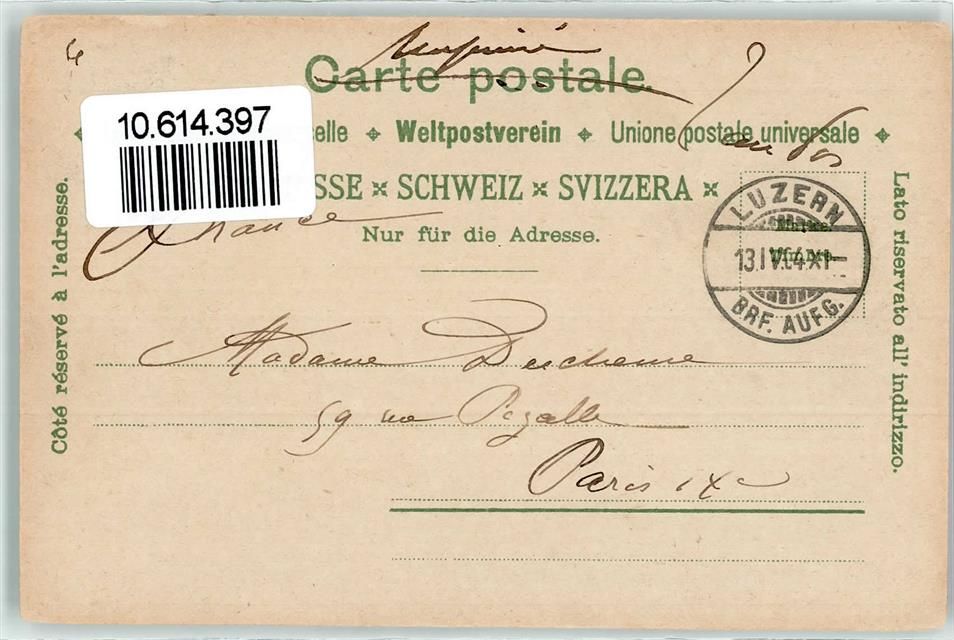 Imprimé
Carte postale.
10.614.397
elle Weltpostverein Unione postale universale
SSE × SCHWEIZ × SVIZZERA ×
France
Nur für die Adresse.
LUZERN
13.IV.04 XI
BRF. AUFG.
Côté réservé à l'adresse.
Lato riservato all' indirizzo.
Madame
59 rue Pigalle
Paris IXe